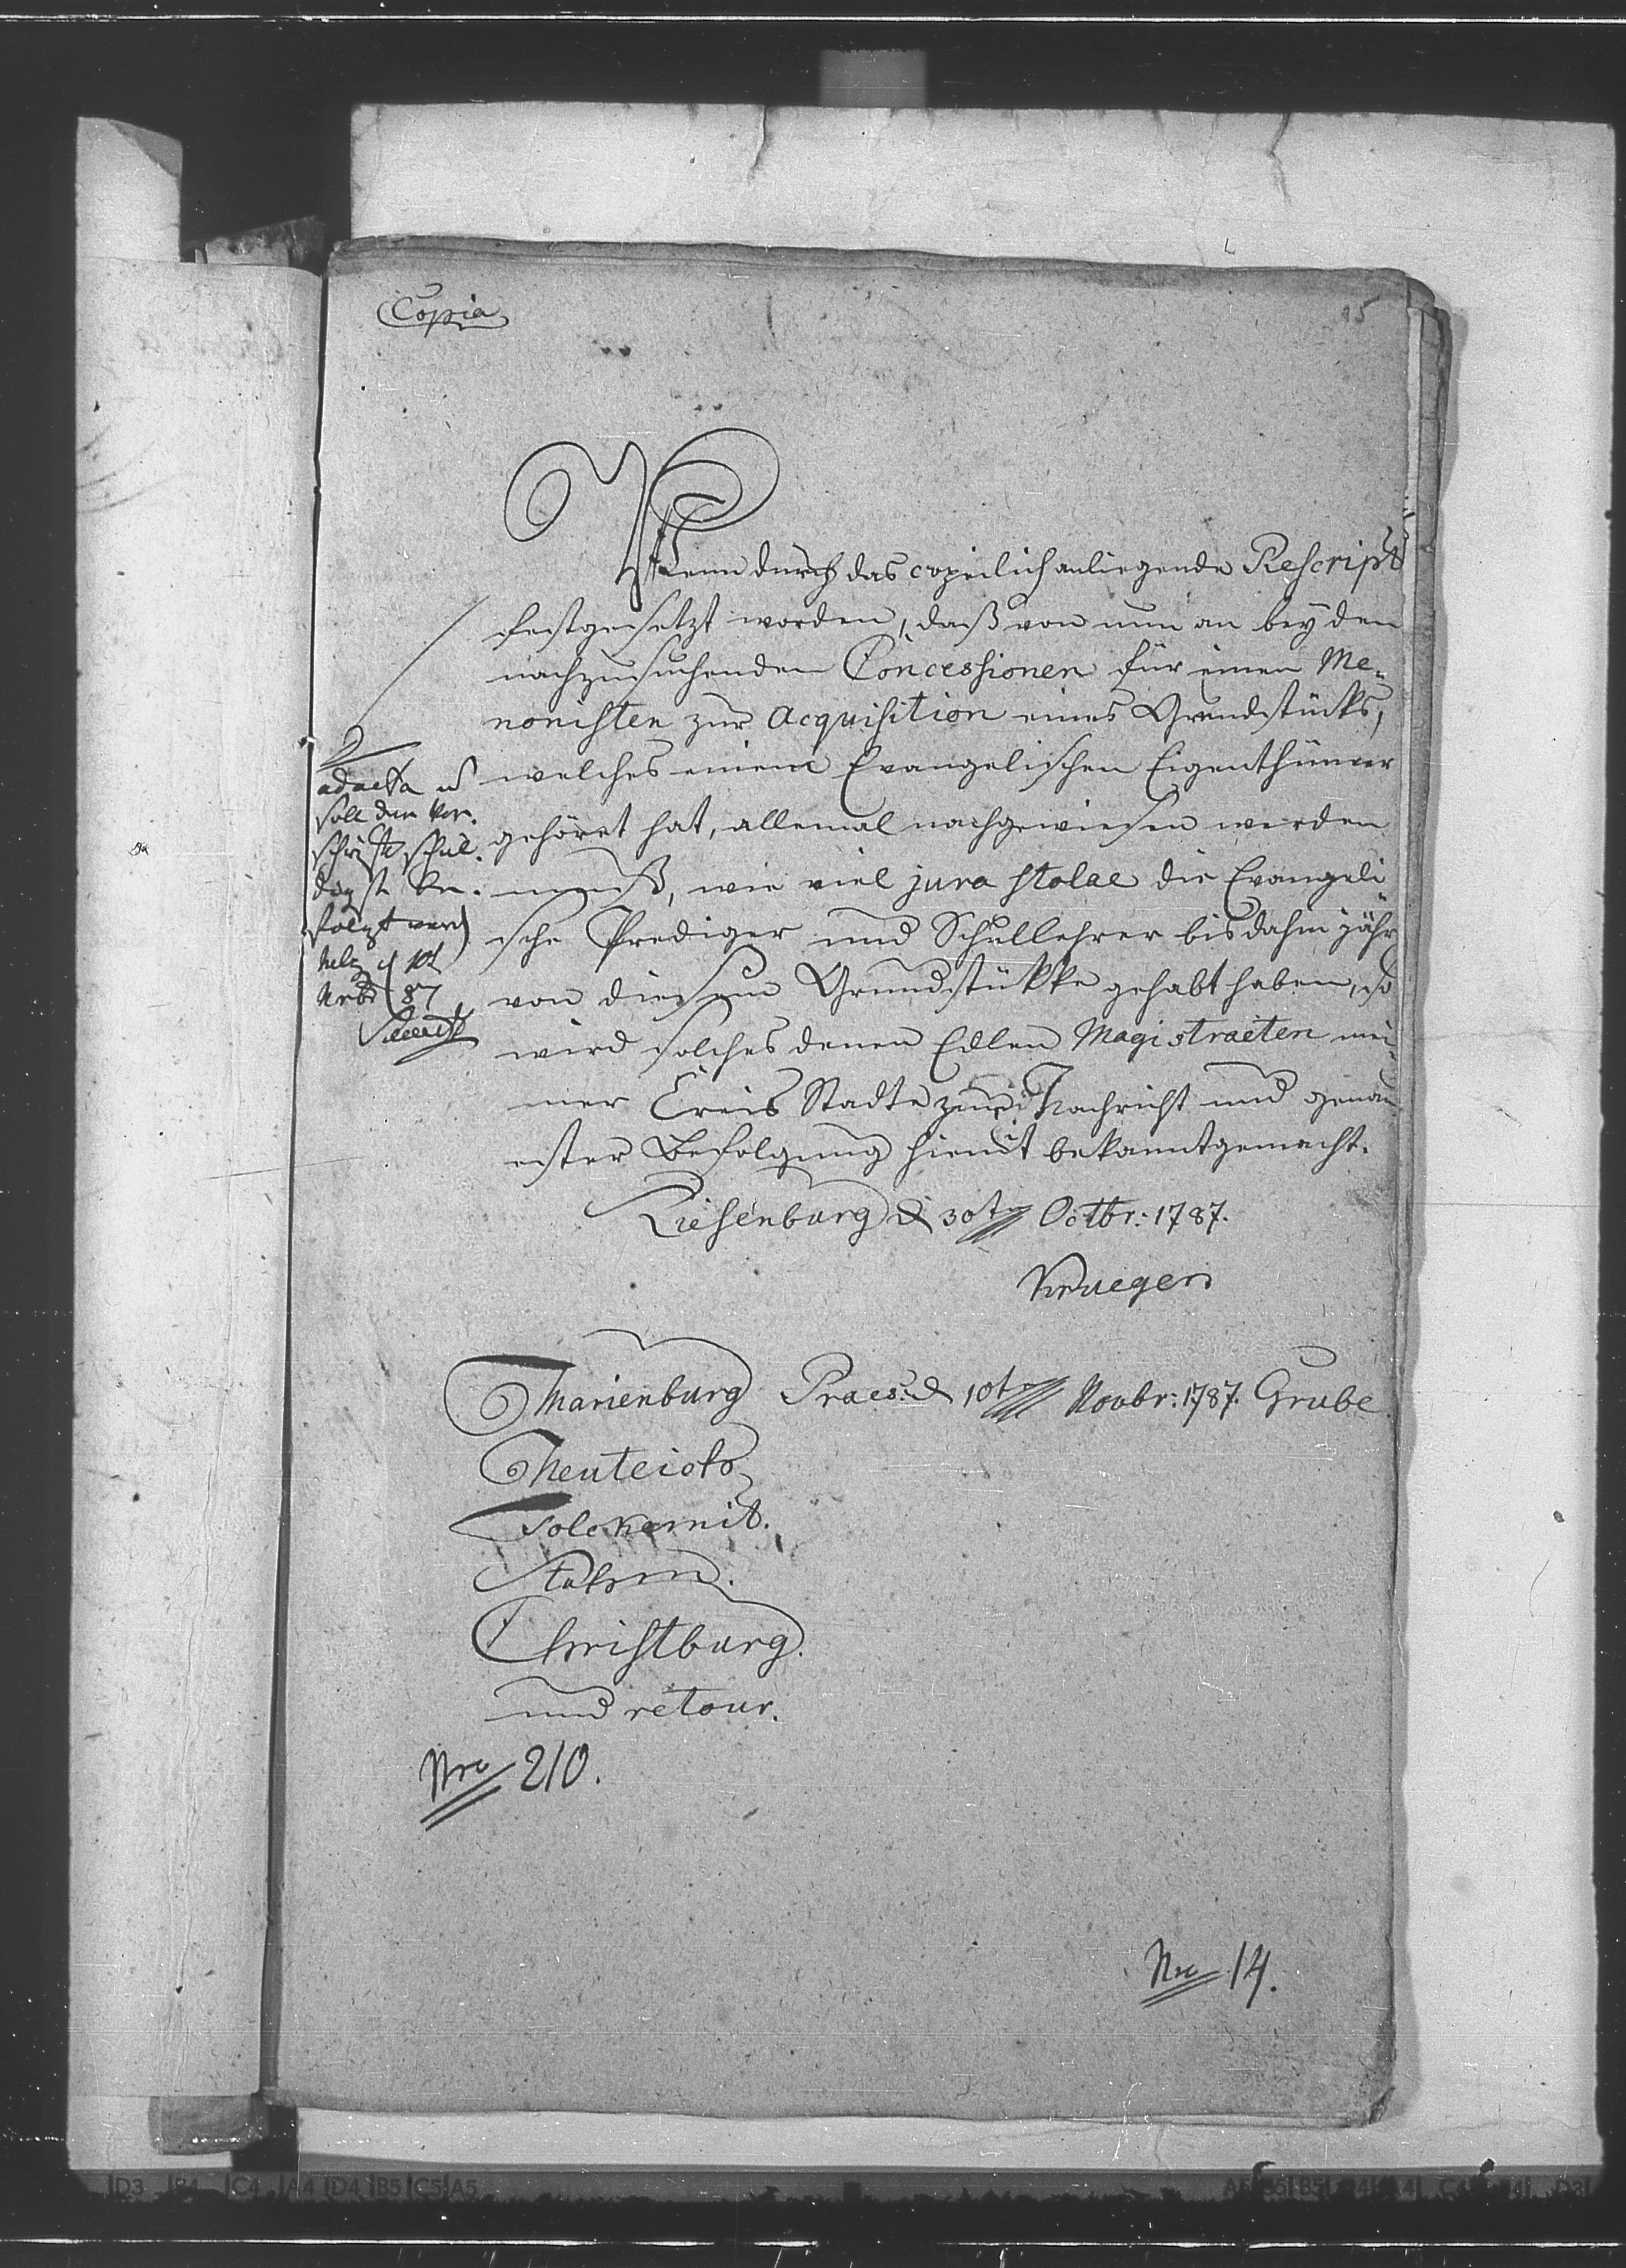 Copia
95
Wenn durch das copeilich anliegende Rescript
festgesetzt worden, daß von nun an bey den
nachzusuchenden Concessionen für einen Me-
nonisten zur Acquisition eines Grundstücks,
welches einem Evangelischen Eigenthümer
gehöret hat, allemal nachgewiesen werden
muß, wie viel jura stolae die Evangeli-
sche Prediger und Schullehrer bis dahin jährl
von diesem Grundstükke gehabt haben, so
wird solches denen Edlen Magistraeten mei-
ner Creis Stadte zur Nachricht und genau
ester Befolgung hiemit bekanntgemacht.
Riesenburg d 30ten Octbr: 1787.
Krueger
ad acta u
soll der Vor-
schrift schul-
digst be-
folgt werd
10t
87
Marienburg Praes: d 10ten Novbr: 1787. Grube
Neuteich
Tolckemit.
Stuhm.
Christburg.
und retour.
Nro 210.
Nro 14.